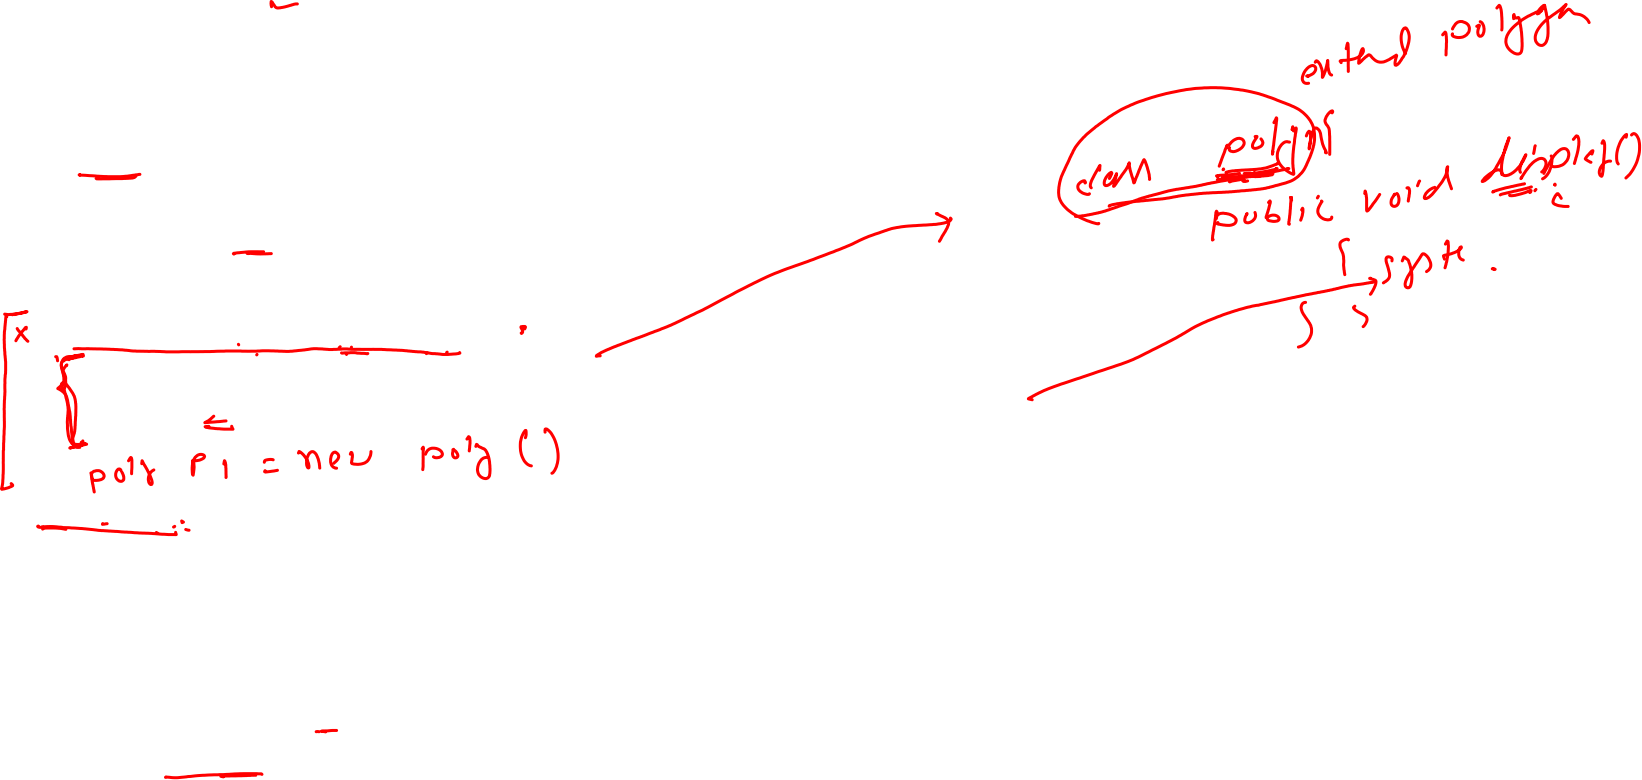 extend polygon
class poly {
public void display()
{ syste.
x
poly P1 = new poly ()